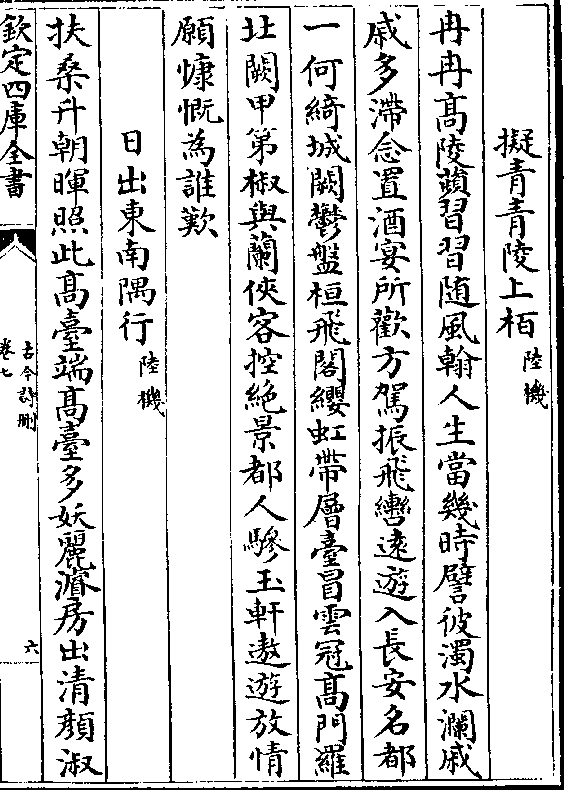 擬青青陵上栢 陸機
冉冉高陵蘋習習随風翰人生當幾時譬彼濁水瀾戚
戚多滯念置酒宴所歡方駕振飛轡逺遊入長安名都
一何綺城闕鬱盤桓飛閣纓虹帶層臺冒雲冠高門羅
北闕甲第椒與蘭俠客控絶景都人驂玉軒遨遊放情
願慷慨為誰歎
日出東南隅行 陸機
扶桑升朝暉照此高臺端高臺多妖麗濬房出清顔淑
欽定四庫全書
古今詩刪
卷七
六